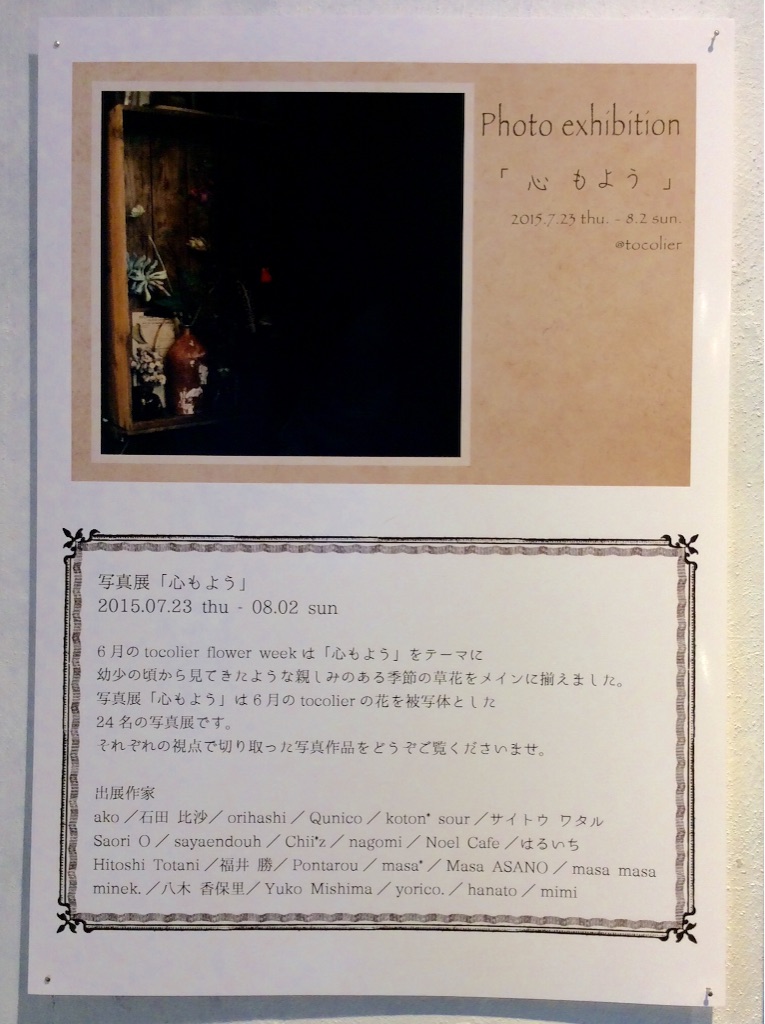 Photo exhibition
「 心 もよう 」
2015.7.23 thu. - 8.2 sun.
@tocolier
写真展「心もよう」
2015.07.23 thu - 08.02 sun
6月の tocolier flower week は「心もよう」をテーマに
幼少の頃から見てきたような親しみのある季節の草花をメインに揃えました。
写真展「心もよう」は6月の tocolier の花を被写体とした
24名の写真展です。
それぞれの視点で切り取った写真作品をどうぞご覧くださいませ。
出展作家
ako／石田 比沙／ orihashi／ Qunico ／ koton* sour ／サイトウ ワタル
Saori O ／ sayaendouh ／ Chii*z ／ nagomi ／ Noel Cafe ／はるいち
Hitoshi Totani ／福井 勝／ Pontarou ／ masa* ／ Masa ASANO ／ masa masa
minek. ／八木 香保里／ Yuko Mishima ／ yorico. ／ hanato ／ mimi